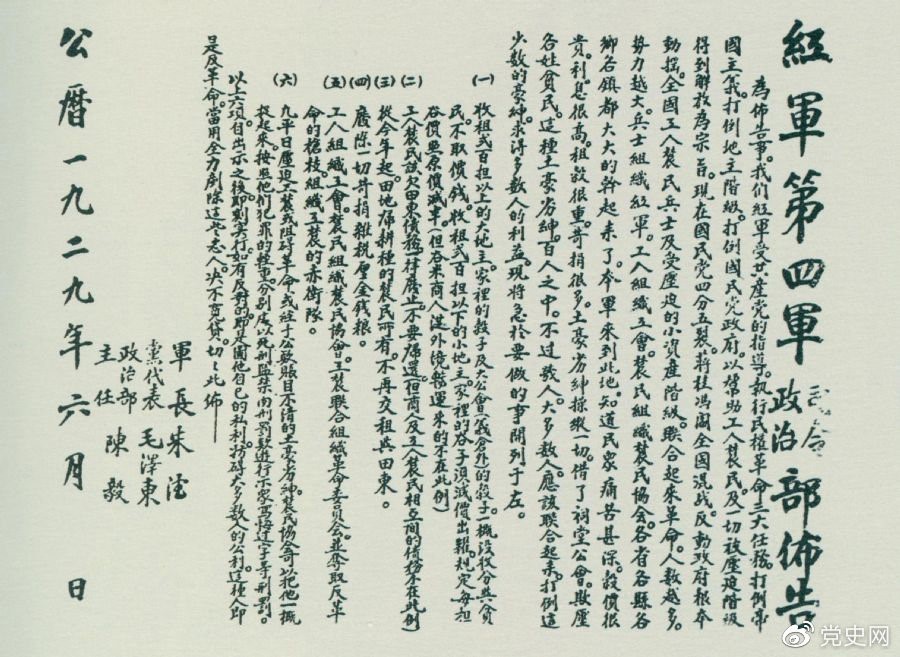 紅軍第四軍司令政治部佈告
為佈告事。我們紅軍受共產党的指導。執行民權革命三大任務。打倒帝
國主義。打倒地主階級。打倒國民党政府。以幫助工人農民及一切被壓迫階級
得到解放為宗旨。現在國民党四分五裂。蔣桂馮閻全國混战。反動政府根本
動搖。全國工人農民兵士及受壓迫的小資產階級聯合起來革命。人數越多。
勢力越大。兵士組織紅軍。工人組織工會。農民組織農民協会。各省各縣各
鄉各鎮都大大的幹起來了。本軍來到此地。知道民衆痛苦甚深。穀價很
貴。利息很高。租穀很重。苛捐很多。土豪劣紳操縱一切。借了祠堂公會。欺壓
各姓貧民。這種土豪劣紳。百人之中。不过数人。大多数人。應該联合起來。打倒這
少数的豪紳。求得多数人的利益。現將急於要做的事開列于左。
(一)收租弍百担以上的大地主。家裡的穀子及大公會(義倉外)的穀子一概沒收分與貧
民。不取價钱。收租弍百担以下的小地主。家裡的谷子須減價出糶。規定每担
谷價照原價減半。(但谷米商人從外境辦運來的不在此例)
(二)工人農民該欠田東債務。一律廢止。不要歸還。(但商人及工人農民相互間的債務不在此例)
(三)從今年起。田地歸耕種的農民所有。不再交租與田東。
(四)廢除一切苛捐雜税厘金钱粮。
(五)工人組織工會。農民組織農民協會。工農联合組織革命委員会。並奪取反革
命的槍枝組織工農的赤衛隊。
(六)凡平日壓迫工農或阻碍革命或經手公欵賬目不清的土豪劣紳。農民協会可以把他一概
捉起來。按照他们犯罪的輕重。分别處以死刑監禁肉刑罰欵遊行示衆寫悔过字等刑罰。
以上六項自出示之後。即刻实行。如有反對的。即是圖他自己的私利。妨碍大多数人的公利。這種人即
是反革命。當用全力剷除這些惡人。决不寬贷。切切此佈
軍長朱德
黨代表毛澤東
政治部主任陳毅
公曆一九二九年六月 日
党史网